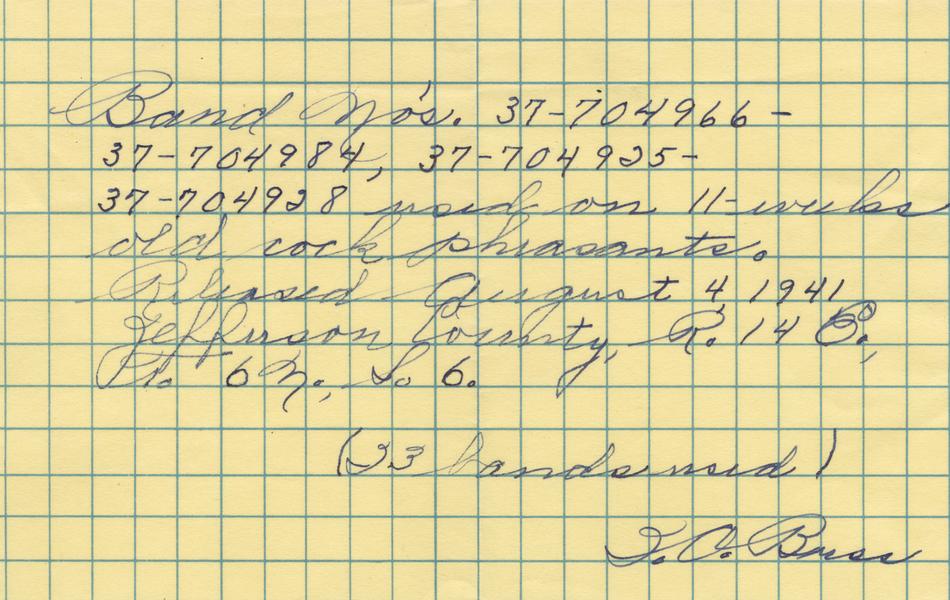 Band No's. 37-704966-
37-704984, 37-704925-
37-704928 used on 11-weeks
old cock pheasants.
Released August 4, 1941
Jefferson County, R. 14 E.,
T. 6 N., S. 6.
(23 bands used)
I. O. Buss